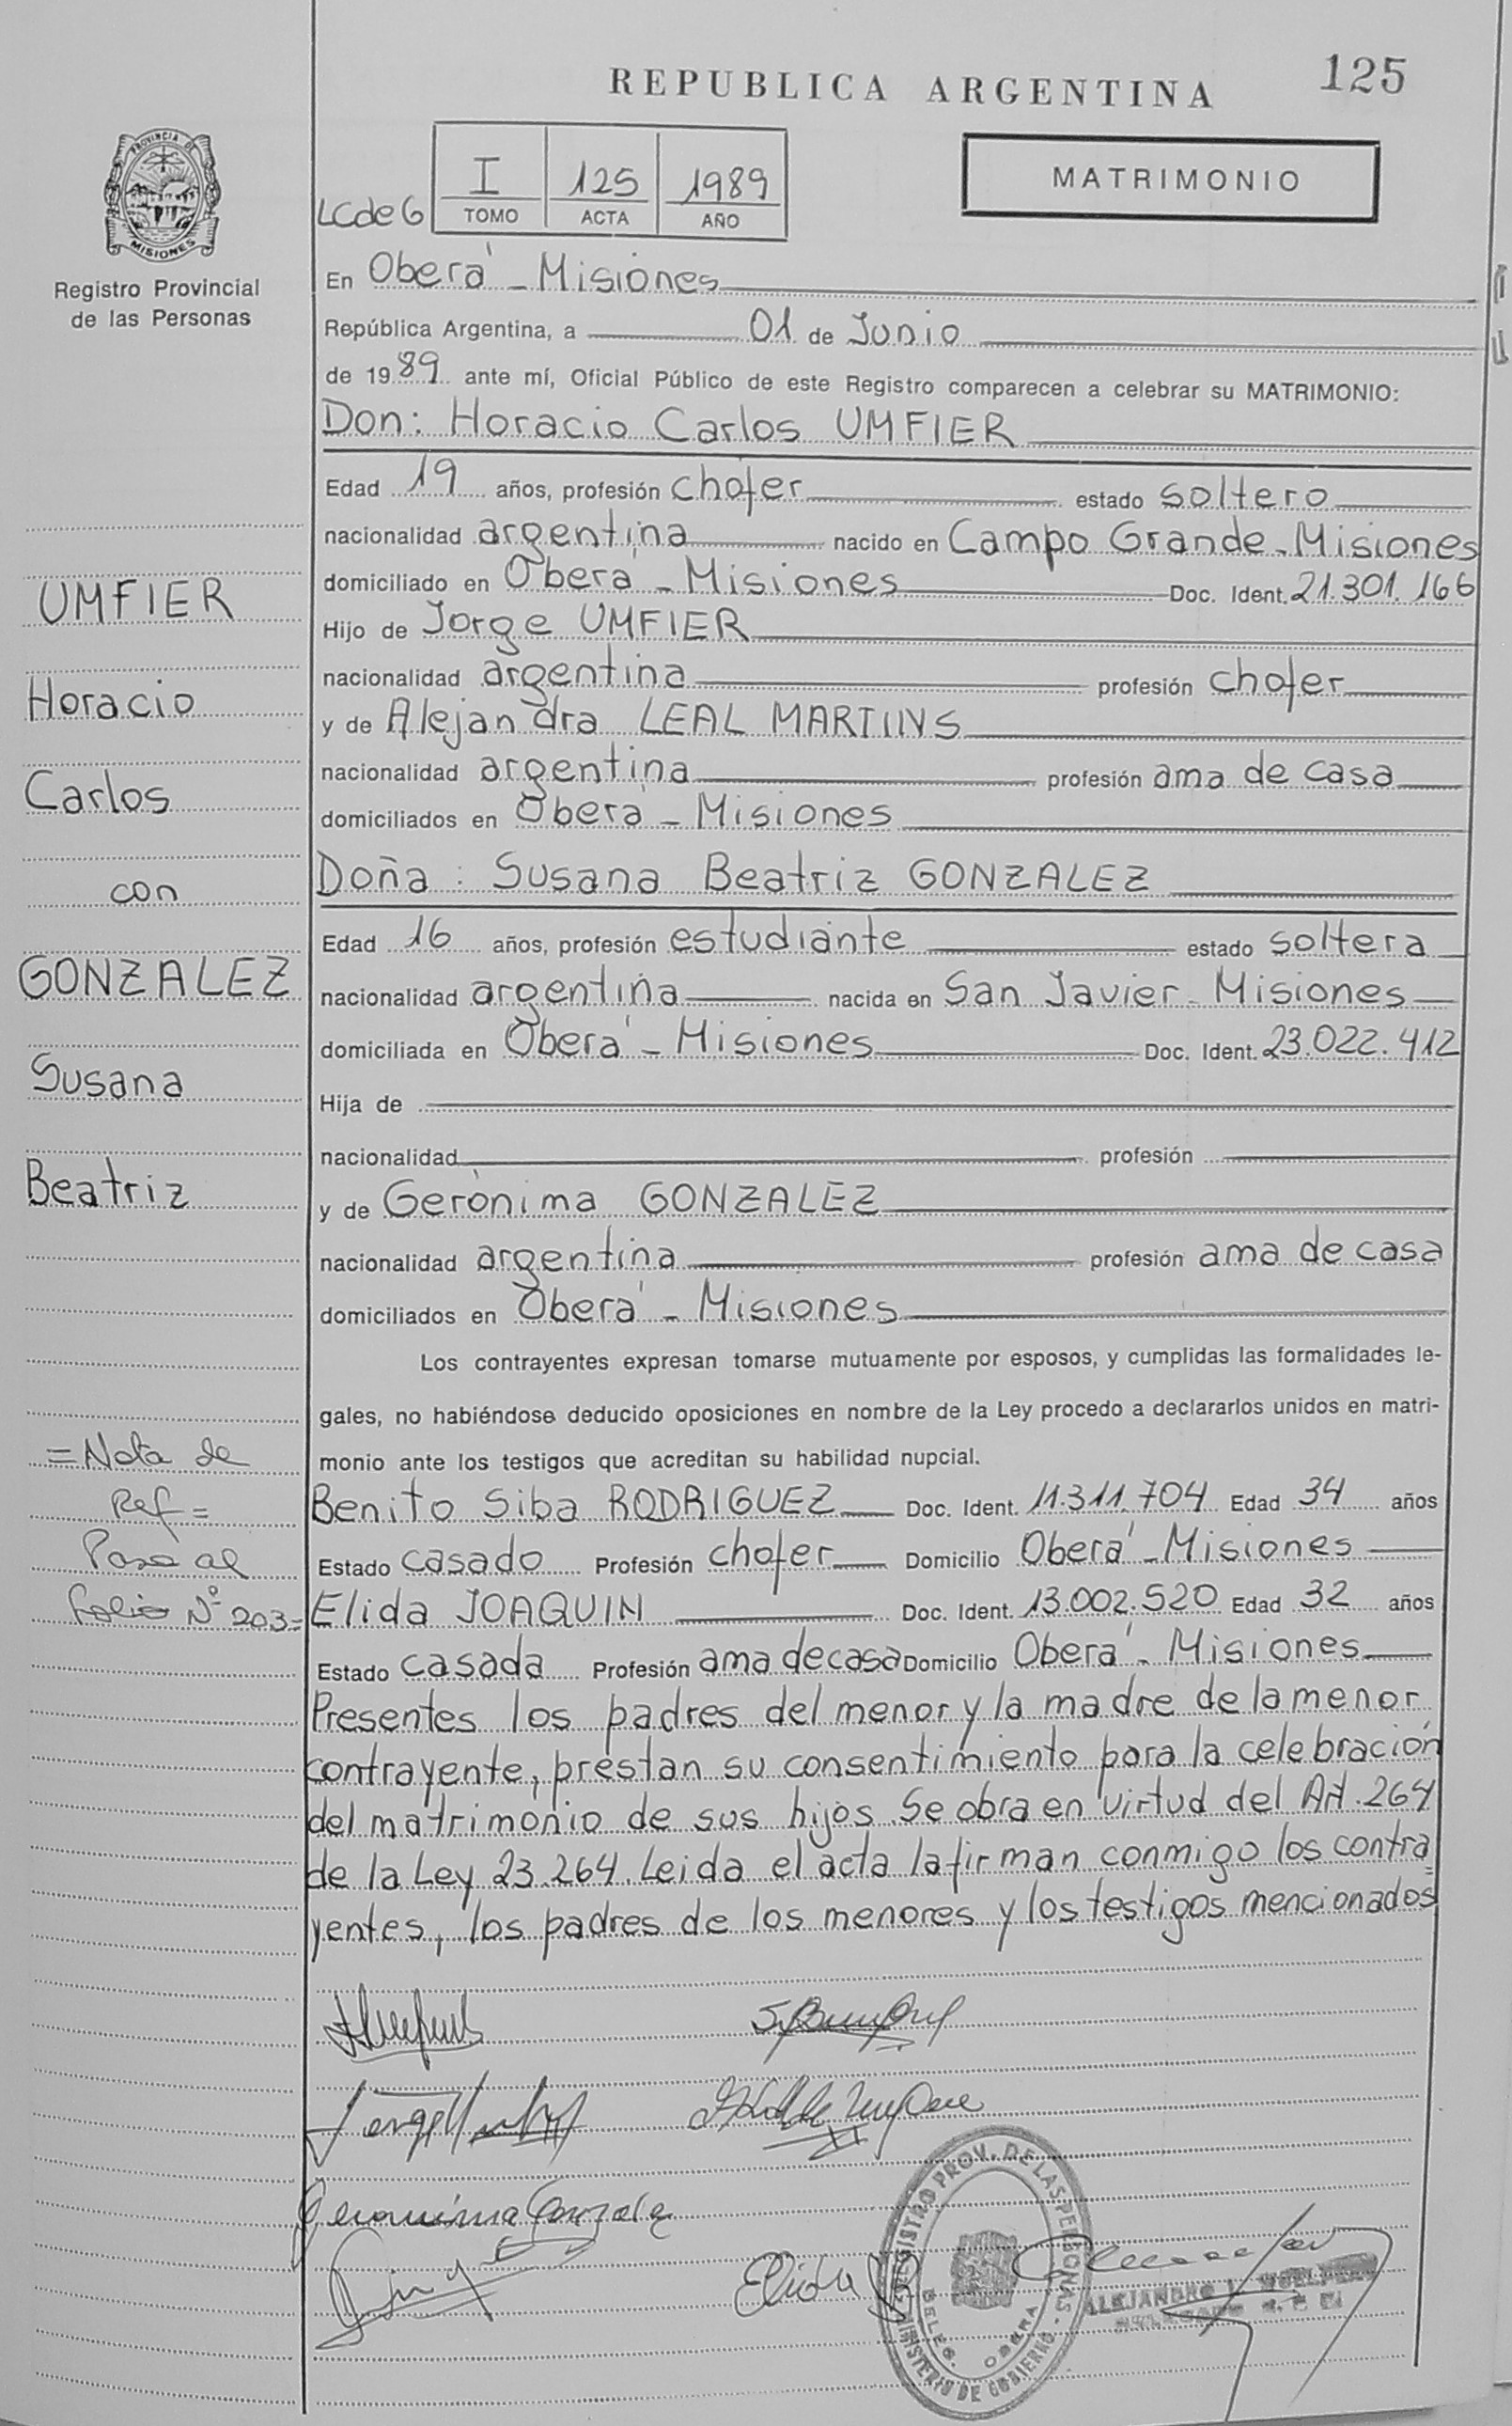 REPUBLICA ARGENTINA 125
PROVINCIA DE
MISIONES
Registro Provincial
de las Personas
LCde G I 125 1989
TOMO ACTA AÑO
MATRIMONIO
En Oberá - Misiones
República Argentina, a 01 de Junio
de 1989 ante mí, Oficial Público de este Registro comparecen a celebrar su MATRIMONIO:
Don: Horacio Carlos UMFIER
Edad 19 años, profesión chofer estado soltero
nacionalidad argentina nacido en Campo Grande - Misiones
domiciliado en Oberá - Misiones Doc. Ident. 21.301.166
Hijo de Jorge UMFIER
nacionalidad argentina profesión chofer
y de Alejandra LEAL MARTINS
nacionalidad argentina profesión ama de casa
domiciliados en Oberá - Misiones
Doña: Susana Beatriz GONZALEZ
Edad 16 años, profesión estudiante estado soltera
nacionalidad argentina nacida en San Javier - Misiones
domiciliada en Oberá - Misiones Doc. Ident. 23.022.412
Hija de
nacionalidad profesión
y de Gerónima GONZALEZ
nacionalidad argentina profesión ama de casa
domiciliados en Oberá - Misiones
Los contrayentes expresan tomarse mutuamente por esposos, y cumplidas las formalidades le-
gales, no habiéndose deducido oposiciones en nombre de la Ley procedo a declararlos unidos en matri-
monio ante los testigos que acreditan su habilidad nupcial.
Benito Siba RODRIGUEZ Doc. Ident. 11.311.704 Edad 34 años
Estado casado Profesión chofer Domicilio Oberá - Misiones
Elida JOAQUIN Doc. Ident. 13.002.520 Edad 32 años
Estado casada Profesión ama de casa Domicilio Oberá - Misiones
Presentes los padres del menor y la madre de la menor
contrayente, prestan su consentimiento para la celebración
del matrimonio de sus hijos. Se obra en virtud del Art. 264
de la Ley 23.264. Leida el acta la firman conmigo los contra
yentes, los padres de los menores y los testigos mencionados
UMFIER
Horacio
Carlos
con
GONZALEZ
Susana
Beatriz
=Nota de
Ref=
Pasa al
folio Nº 203=
Geronima Gonzalez
Elida
REGISTRO PROV. DE LAS PERSONAS
MINISTERIO DE GOBIERNO
DELEG. OBERA
ALEJANDRO